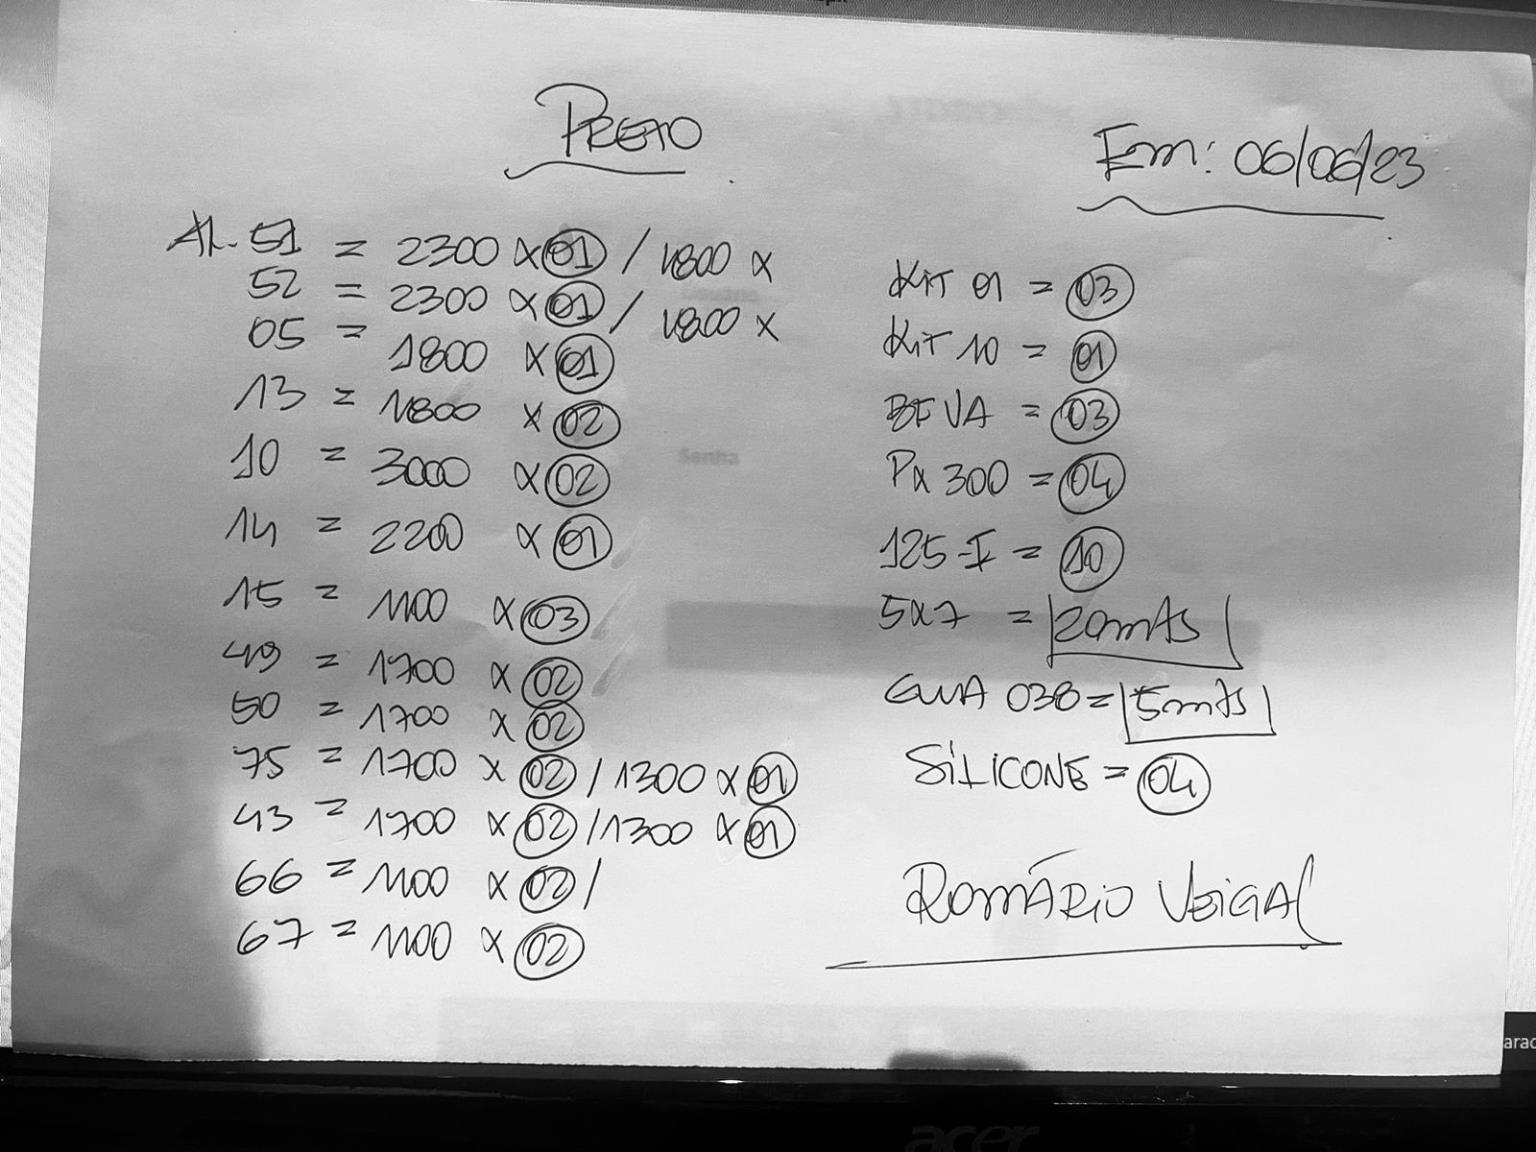 PRETO
Em: 06/06/23
AL. 51 = 2300 x 01 / 1800 x
52 = 2300 x 01 / 1800 x
05 = 1800 x 01
13 = 1800 x 02
10 = 3000 x 02
14 = 2200 x 01
15 = 1100 x 03
49 = 1700 x 02
50 = 1700 x 02
75 = 1700 x 02 / 1300 x 01
43 = 1700 x 02 / 1300 x 01
66 = 1100 x 02 /
67 = 1100 x 02
KIT 01 = 03
KIT 10 = 01
BEVA = 03
PX 300 = 04
125-I = 10
5x7 = 20mts
GUIA 038 = 5mts
SILICONE = 04
ROMÁRIO VEIGA
Senha
acer